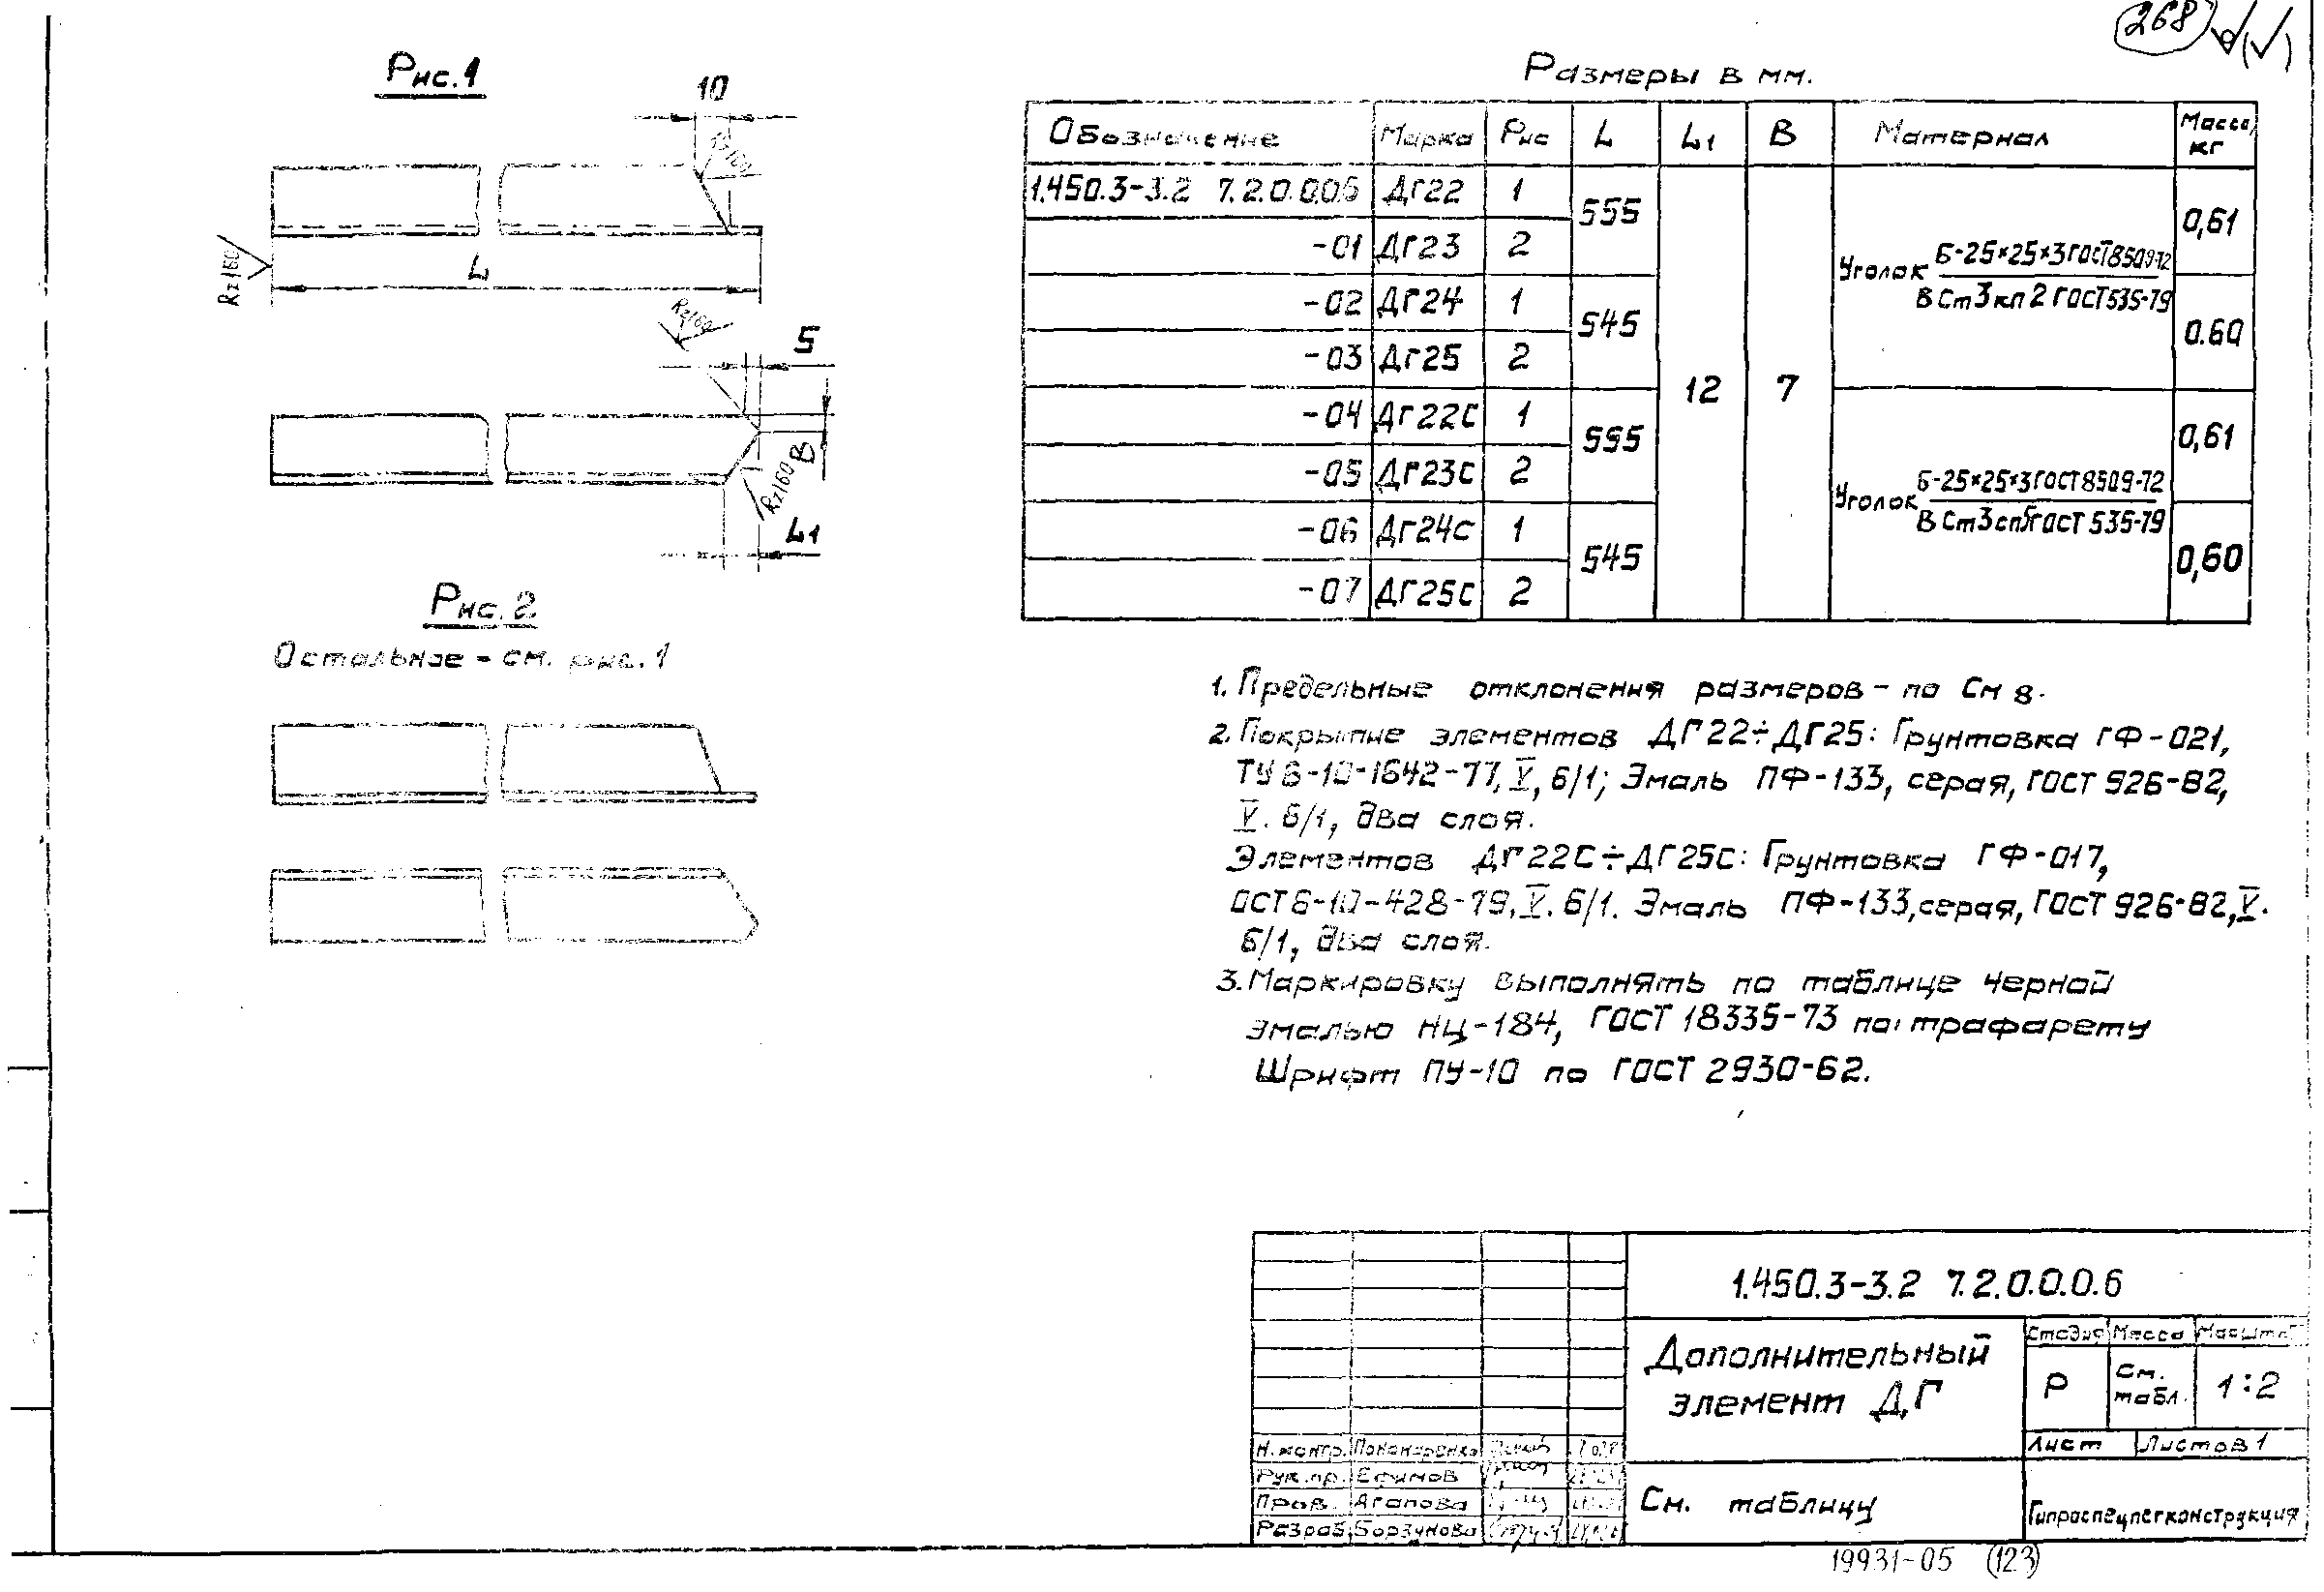 268
Рис.1
10
Rz160
L
Rz160
5
В
Rz160
L1
Рис. 2
Остальное - см. рис. 1
Размеры в мм.
Обозначение Марка Рис L L1 В Материал Масса, кг
1.450.3-3.2 7.2.0.0.0.6 ДГ22 1 555 12 7 Уголок Б-25×25×3 ГОСТ 8509-72 / В Ст3кп2 ГОСТ 535-79 0,61
-01 ДГ23 2
-02 ДГ24 1 545 0.60
-03 ДГ25 2
-04 ДГ22С 1 555 Уголок Б-25×25×3 ГОСТ 8509-72 / В Ст3сп5 ГОСТ 535-79 0,61
-05 ДГ23С 2
-06 ДГ24С 1 545 0,60
-07 ДГ25С 2
1. Предельные отклонения размеров - по См 8.
2. Покрытие элементов ДГ22÷ДГ25: Грунтовка ГФ-021,
ТУ 6-10-1642-77, V, 6/1; Эмаль ПФ-133, серая, ГОСТ 926-82,
V. 6/1, два слоя.
Элементов ДГ22С÷ДГ25С: Грунтовка ГФ-017,
ОСТ 6-10-428-79, V. 6/1. Эмаль ПФ-133, серая, ГОСТ 926-82, V.
6/1, два слоя.
3. Маркировку выполнять по таблице черной
эмалью НЦ-184, ГОСТ 18335-73 по трафарету
Шрифт ПУ-10 по ГОСТ 2930-62.
1.450.3-3.2 7.2.0.0.0.6
Дополнительный
элемент ДГ
Стадия Масса Масштаб
Р См. табл. 1:2
Лист Листов 1
Н.контр. Пономаренко
Рук.пр. Ефимов
Пров. Агапова
Разраб. Борзунова
См. таблицу
Гипроспецлегконструкция
19931-05 (123)